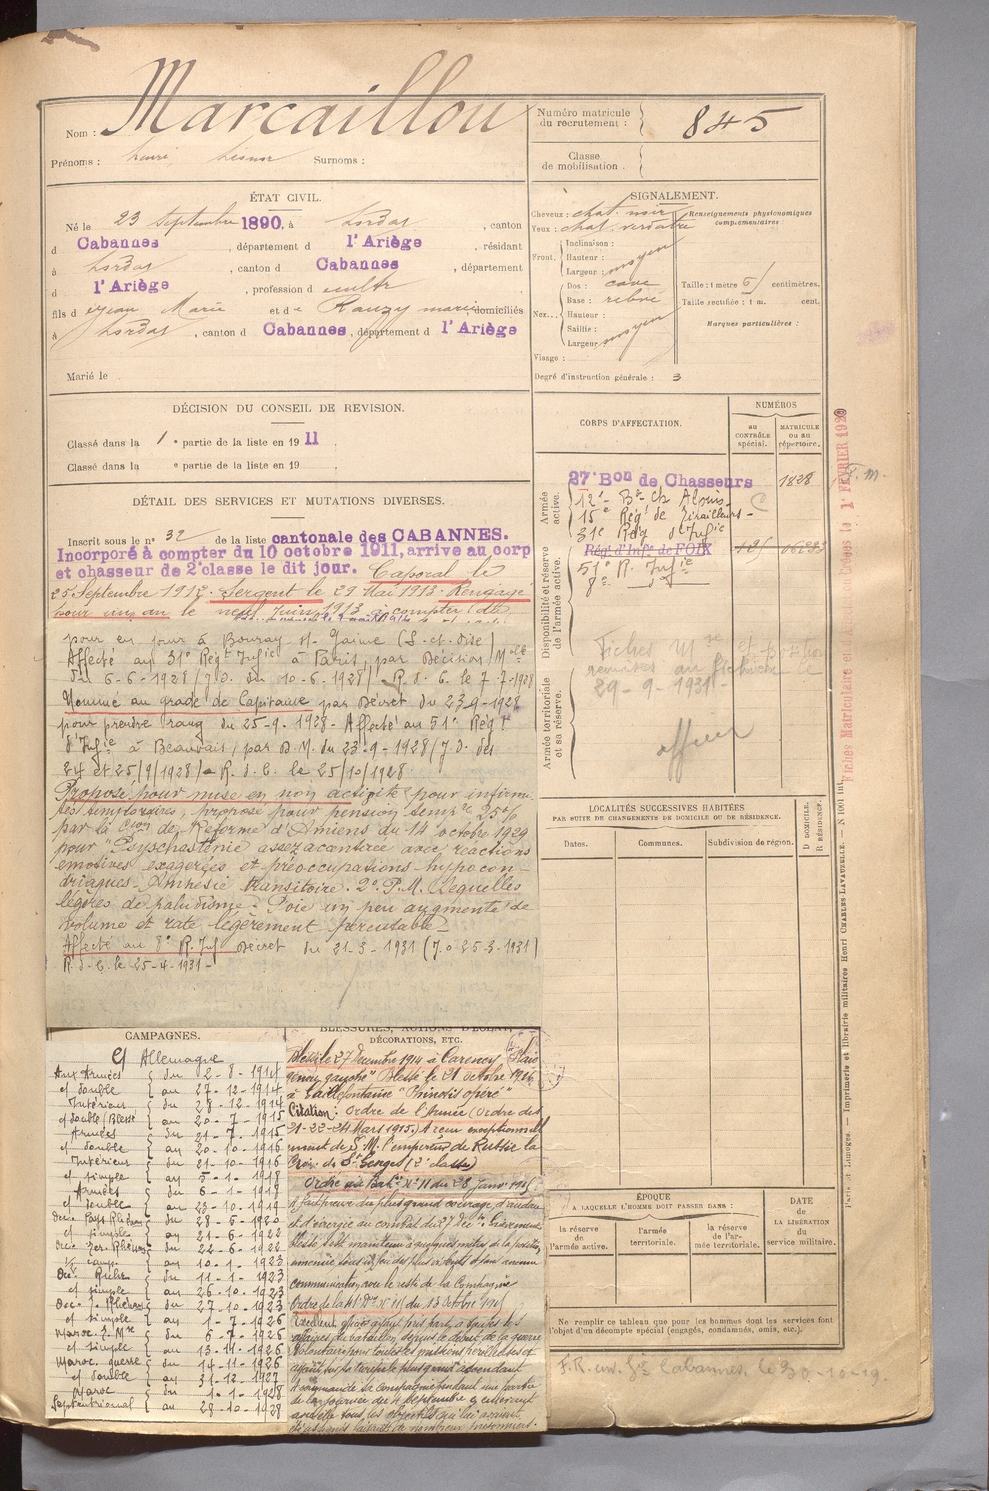 Nom : Marcaillou
Prénoms : henri, Surnoms :
Numéro matricule du recrutement : 845
Classe de mobilisation .
ÉTAT CIVIL.
Né le 23 Septembre 1890, à Lordat , canton
d Cabannes , département d l'Ariège , résidant
à Lordat , canton d Cabannes , département
d l'Ariège , profession d cultr
fils d e Jean Marie et d e Rauzy marie domiciliés
à Lordat , canton d Cabannes , département d l'Ariège
Marié le
SIGNALEMENT.
Cheveux : chat. noir
Yeux : chat. verdâtre
Renseignements physionomiques complémentaires :
Front. Inclinaison :
Hauteur :
Largeur : moyen
Nez... Dos : cave
Base : relevé
Hauteur :
Saillie :
Largeur : moyen
Visage :
Taille : 1 mètre 61 centimètres.
Taille rectifiée : 1 m. cent.
Marques particulières :
Degré d'instruction générale : 3
DÉCISION DU CONSEIL DE REVISION.
Classé dans la 1 e partie de la liste en 1911 .
Classé dans la e partie de la liste en 19 .
DÉTAIL DES SERVICES ET MUTATIONS DIVERSES.
Inscrit sous le n° 32 de la liste cantonale des CABANNES.
Incorporé à compter du 10 octobre 1911, arrive au corp
et chasseur de 2e classe le dit jour. Caporal le
25 Septembre 1912. Sergent le 29 Mai 1913. Rengagé
pour un an le neuf Juin 1913 à compter du
pour en jouir à Bouray St. Gaine (S. et. Oise)
Affecté au 31e Régt Infie à Paris, par Décision Melle
du 6-6-1928 (J.O. du 10-6-1928) R. d. C. le 7-7-1928
Nommé au grade de Capitaine par Décret du 23-9-1928
pour prendre rang du 25-9-1928. Affecté au 51e Régt
d'Infie à Beauvais (par D.M. du 23-9-1928 (J.O. des
24 et 25/9/1928) R. d. C. le 25/10/1928.
Proposé pour mise en non activité pour infirmi-
tés temporaires, proposé pour pension tempre 25%
par la Cion de Réforme d'Amiens du 14 octobre 1929
pour "Psyschasténie assez accentuée avec réactions
émotives exagérées et préoccupations hypocon-
driaques. Amnésie transitoire. 2° P.M. Séquelles
légères de paludisme. Foie un peu augmenté de
volume et rate légèrement percutable
Affecté au 8e R. Inf. Décret du 21-3-1931 (J.o 25-3-1931)
R. d. C. le 25-4-1931
CORPS D'AFFECTATION.
NUMÉROS
AU CONTRÔLE SPÉCIAL.
MATRICULE OU AU RÉPERTOIRE.
Armée active.
27e Bon de Chasseurs 1828
12e Bn Ch Alpins
15e Régt de Tirailleurs
31e Régt d'Infie
Disponibilité et réserve de l'armée active.
Régt d'Infie de FOIX
51e R. Infie
8e
Armée territoriale et sa réserve.
Fiches Mle et
remises au fichier le
29-9-1931
officier
LOCALITÉS SUCCESSIVES HABITÉES
PAR SUITE DE CHANGEMENTS DE DOMICILE OU DE RÉSIDENCE.
Dates.
Communes.
Subdivision de région.
D DOMICILE.
R RÉSIDENCE.
CAMPAGNES.
Ct Allemagne
Aux Armées du 2-8-1914
ct double au 27-12-1914
Intérieur du 28-12-1914
ct double (Blessé au 20-7-1915
Armées du 21-7-1915
ct double au 20-10-1916
Intérieur du 21-10-1916
ct simple au 5-1-1918
Armées du 6-1-1918
ct double au 23-10-1919
Occ. Pays Rhénans du 28-6-1920
ct simple au 21-6-1922
Occ. Ter. Rhénans du 22-6-1922
au 10-1-1923
Occ. Ruhr du 11-1-1923
ct simple au 26-10-1923
Occ. T. Rhénans du 27-10-1923
ct simple au 1-7-1926
Maroc du 6-7-1926
ct simple au 13-11-1926
Maroc. guerre du 14-11-1926
ct double au 31-12-1927
Maroc du 1-1-1928
Septentrional au 28-10-1928
BLESSURES, ACTIONS D'ÉCLAT,
DÉCORATIONS, ETC.
Blessé le 27 Décembre 1914 à Carency "Plaie
genou gauche" Blessé le 21 octobre 1916
Citation : Ordre de l'Armée (Ordre des
21-22-24 Mars 1915) A reçu exceptionnel
de S. M. l'empereur de Russie la
Croix de St Georges (2e classe)
Ordre du Baton N° 11 du 28 Janv 1915
A fait preuve du plus grand courage, d'audace
et d'énergie au combat du 27 déc.
Blessé, s'est maintenu à quelques mètres de la position
communication avec le reste de la Compagnie
du 13 Octobre 1915
Excellent officier ayant pris part à toutes les
affaires du bataillon depuis le début de la guerre
Volontaire pour toutes les missions périlleuses et
ayant sur sa troupe le plus grand ascendant
A commandé sa compagnie pendant une partie
de la journée du 4 Septembre
avec elle tous les objectifs qui lui avaient
ÉPOQUE
A LAQUELLE L'HOMME DOIT PASSER DANS :
la réserve de l'armée active.
l'armée territoriale.
la réserve de l'armée territoriale.
DATE de LA LIBÉRATION du service militaire.
Ne remplir ce tableau que pour les hommes dont les services font
l'objet d'un décompte spécial (engagés, condamnés, omis, etc.).
F.R. Cabannes. le 30-10-19.
Paris et Limoges. — Imprimerie et librairie militaires Henri CHARLES-LAVAUZELLE. — N 1001 int.